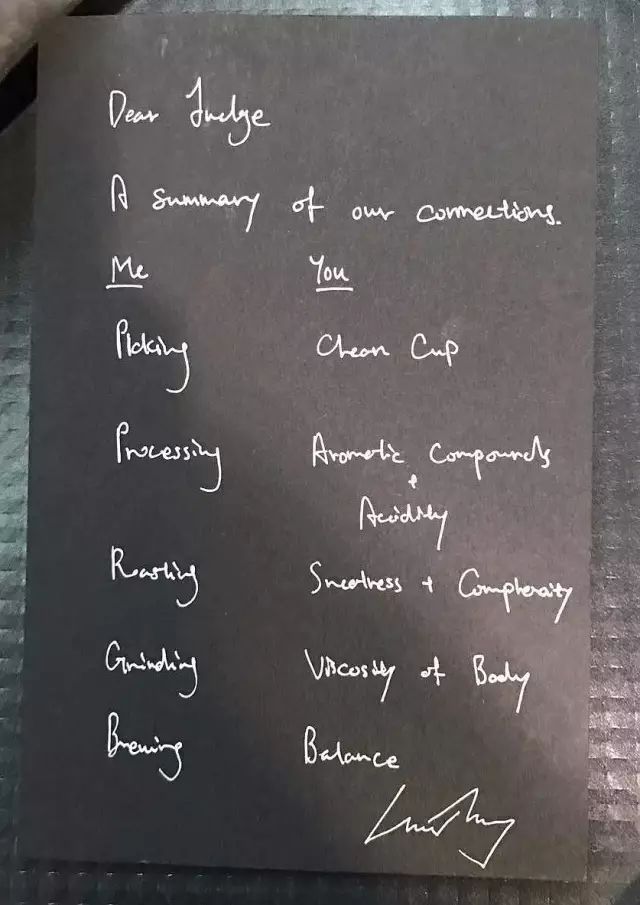 Dear Judge
A summary of our connections.
Me You
Picking Clean Cup
Processing Aromatic Compounds
+
Acidity
Roasting Sweetness + Complexity
Grinding Viscosity of Body
Brewing Balance